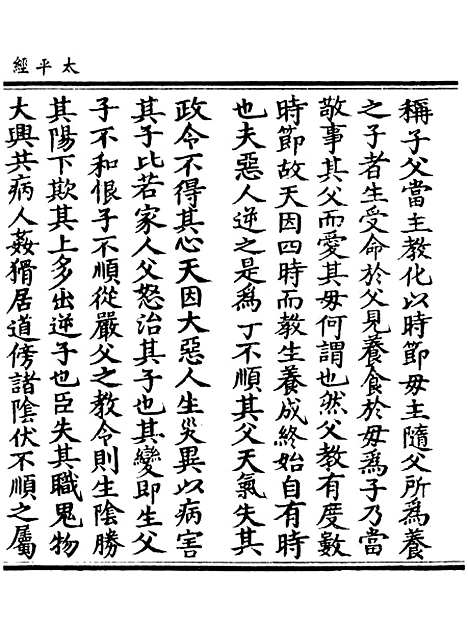 太平經
稱子父當主教化以時節毋主隨父所為養
之子者生受命於父見養食於毋為子乃當
敬事其父而愛其毋何謂也然父教有度數
時節故天因四時而教生養成終始自有時
也夫惡人逆之是為丁不順其父天氣失其
政令不得其心天因大惡人生災異以病害
其子比若家人父怒治其子也其變即生父
子不和恨子不順從嚴父之教令則生陰勝
其陽下欺其上多出逆子也臣失其職鬼物
大興共病人姦猾居道傍諸陰伏不順之屬